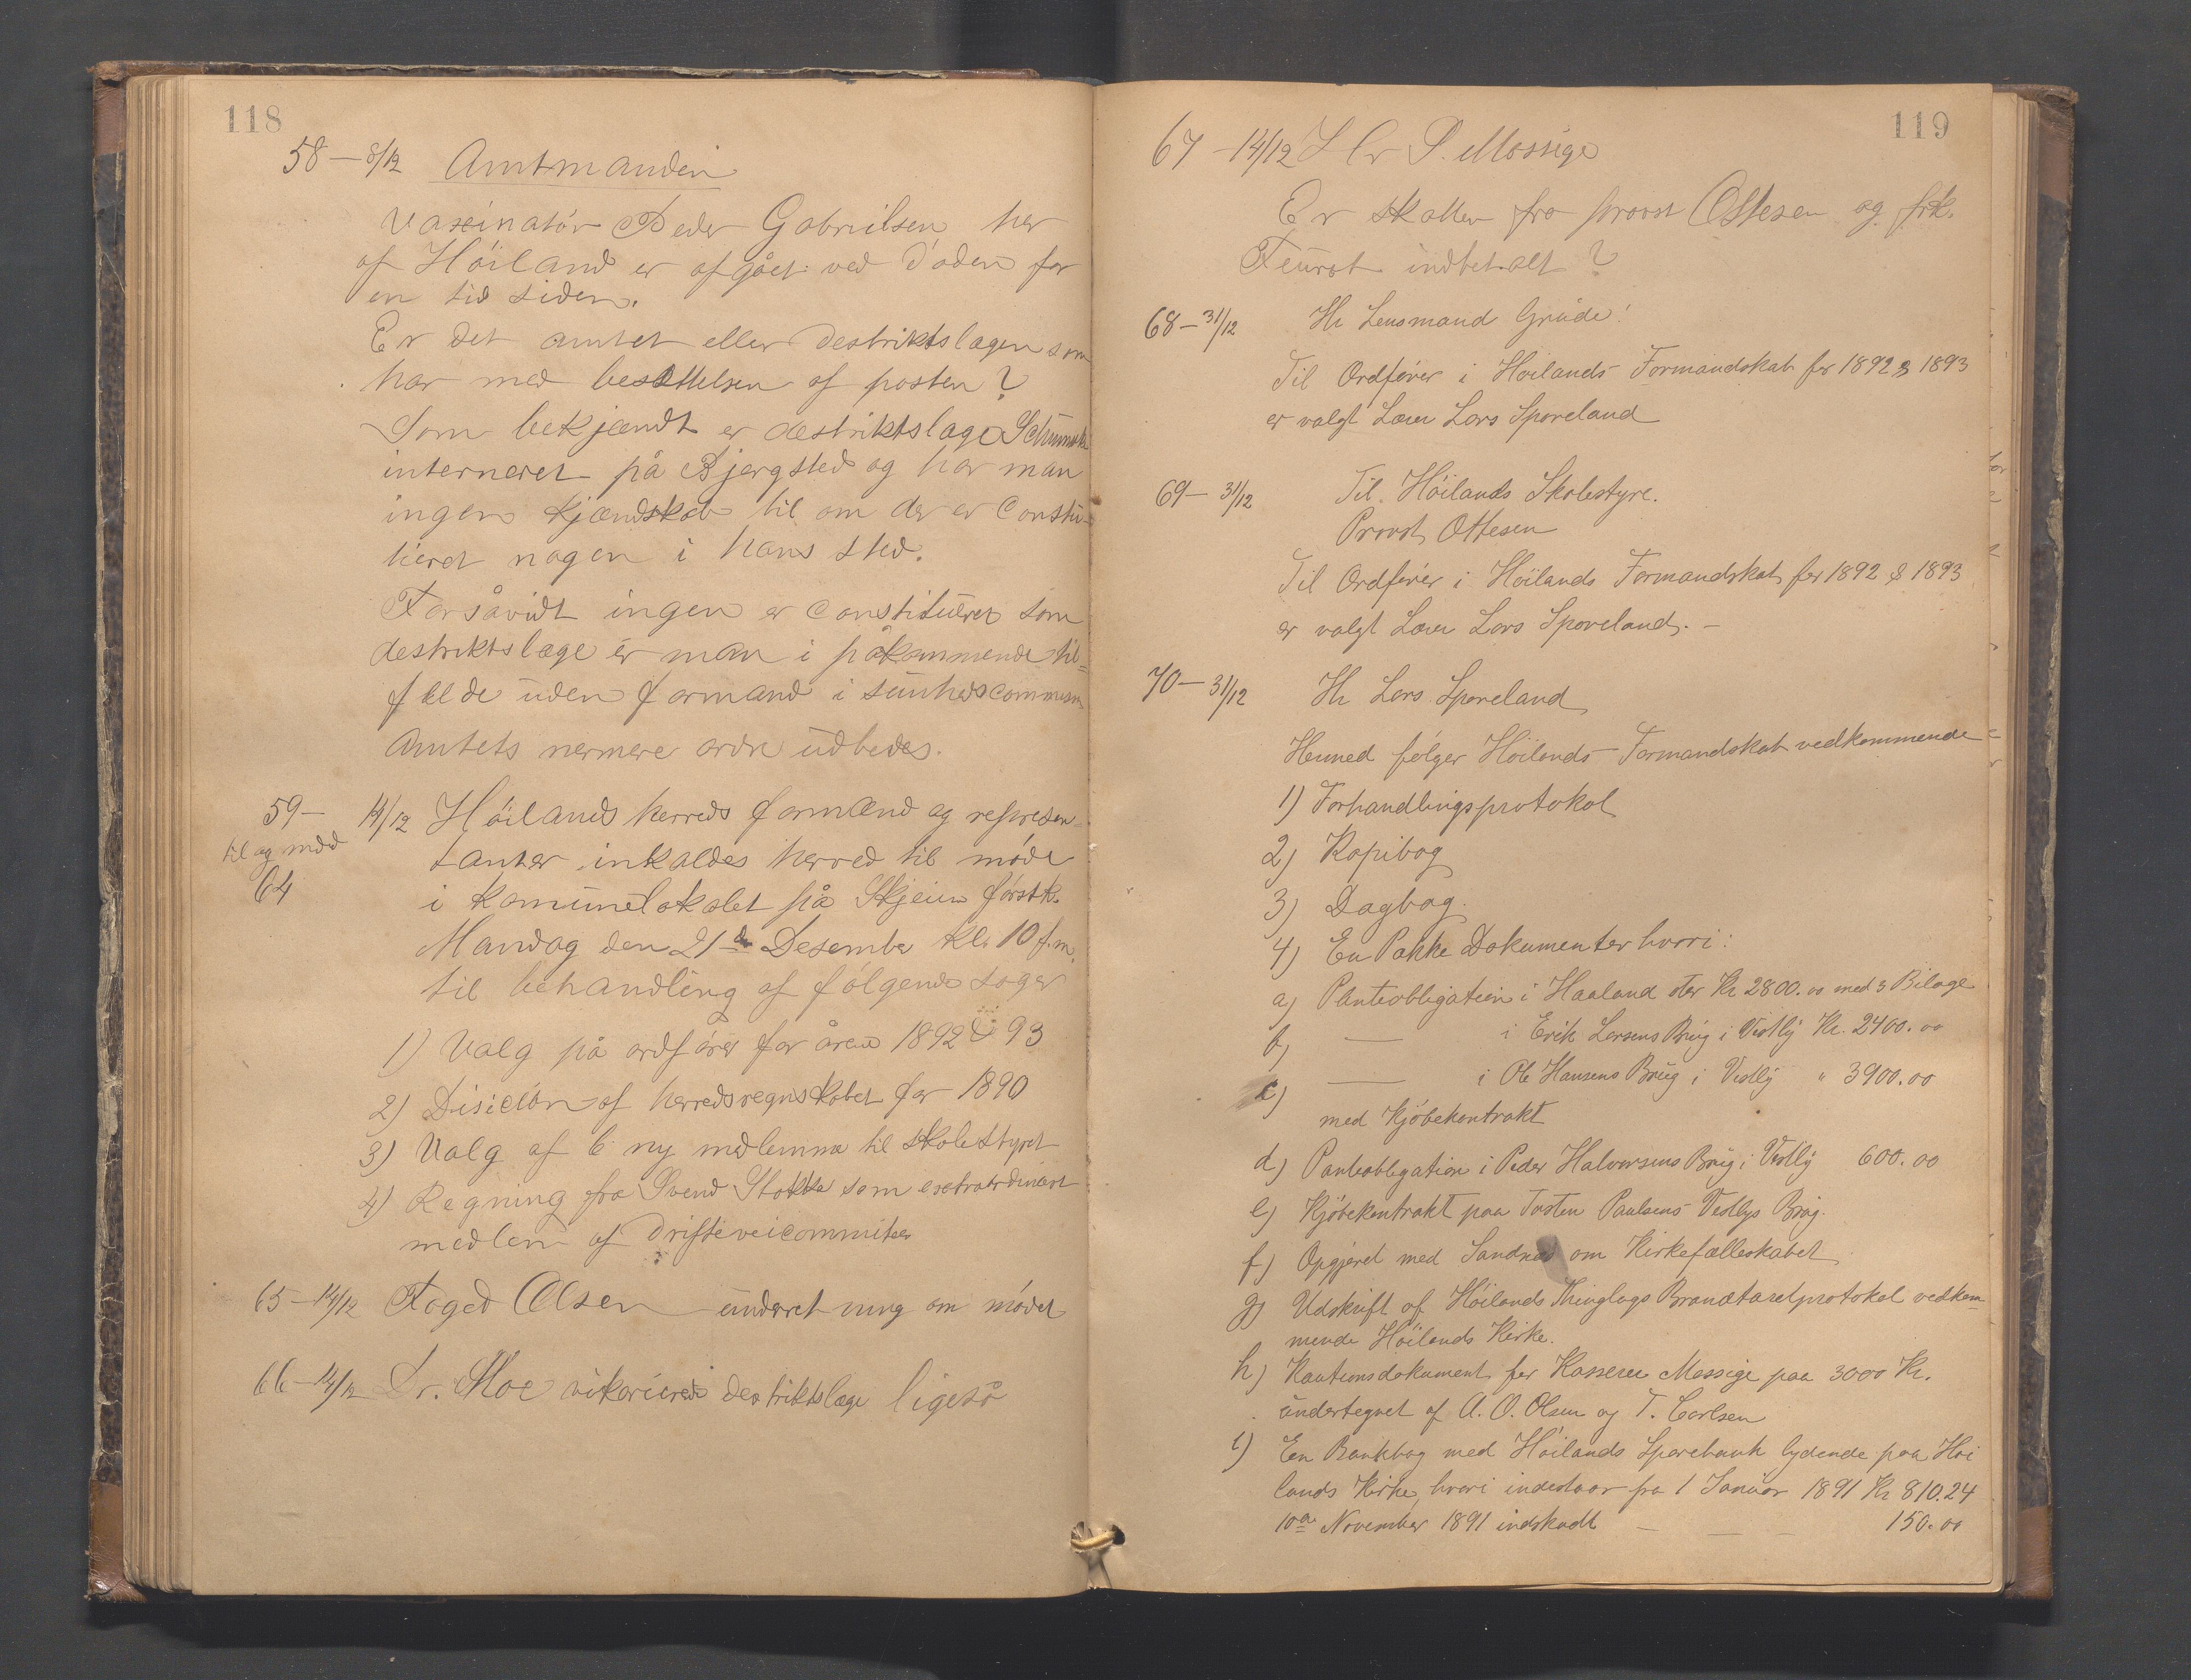 118
58 – 8/12 Amtmanden
Vaxinatör Peder Gabrielsen her
af Höiland er afgået ved döden for
en tid siden.
Er det amtet eller destriktslægen som
har med besættelsen af posten?
Som bekjændt er destriktslæge
interneret på Bjergsted og har man
ingen kjændskab til om der er Constitu-
tieret nogen i hans sted.
Forsåvidt ingen er Constitueret som
destriktslæge er man i påkommende til-
fælde uden formand i sunhedscommission
Amtets nermere ordre udbedes.
59 – 14/12 Höilands herreds formænd og represen-
til og med tanter inkaldes herved til möde
64 i komunelokalet på Skjeien förstk.
Mandag den 21de Desember kl. 10 f.m.
til behandling af fölgende sager
1) Valg på ordförer for årene 1892 & 93
2) Disicion af herredsregnskabet for 1890
3) Valg af 6 ny medlemmer til skolestyret
4) Regning fra Svend Stokka som exstraordinært
medlem af Drifteveicommiteen
65 – 14/12 Foged Olsen underretning om mödet
66 – 14/12 Dr. Moe vikarierende destriktslæge ligeså
119
67 – 14/12 Hr P. Mossige
Er skatten fra provst Ottesen og frk.
indbetalt?
68 – 31/12 Hr Lensmand Grude!
Til Ordförer i Höilands Formandskab for 1892 & 1893
er valgt Lærer Lars Sporeland
69 – 31/12 Til Höilands Skolestyre.
Provst Ottesen
Til Ordförer i Höilands Formandskab for 1892 & 1893
er valgt Lærer Lars Sporeland. –
70 – 31/12 Hr Lars Sporeland
Hermed fölger Höilands Formandskab vedkommende
1) Forhandlingsprotokol
2) Kopibog
3) Dagbog.
4) En Pakke Dokumenter hvori:
a) Panteobligation i Haaland stor Kr 2800.00 med 3 Bilage
b) — i Erik Larsens Brug i Vestly Kr. 2400.00
c) — i Ole Hansens Brug i Vestly " 3900.00
med Kjöbekontrakt
d) Panteobligation i Peder Halvorsens Brug i Vestly 600.00
e) Kjöbekontrakt paa Torsten Paulsens Vestlys Brug.
f) Opgjöret med Sandnæs om Kirkefælleskabet
g) Udskrift af Höilands Thinglags Brandtaxtprotokol vedkom-
mende Höilands Kirke.
h) Kautionsdokument for Kasserer Mossige paa 3000 Kr.
undertegnet af A. O. Olsen og T. Carlsen
i) En Bankbog med Höilands Sparebank lydende paa Höi
lands Kirke, hvori indestaar fra 1 Januar 1891 Kr 810.24
10de November 1891 indskudt — — 150.00